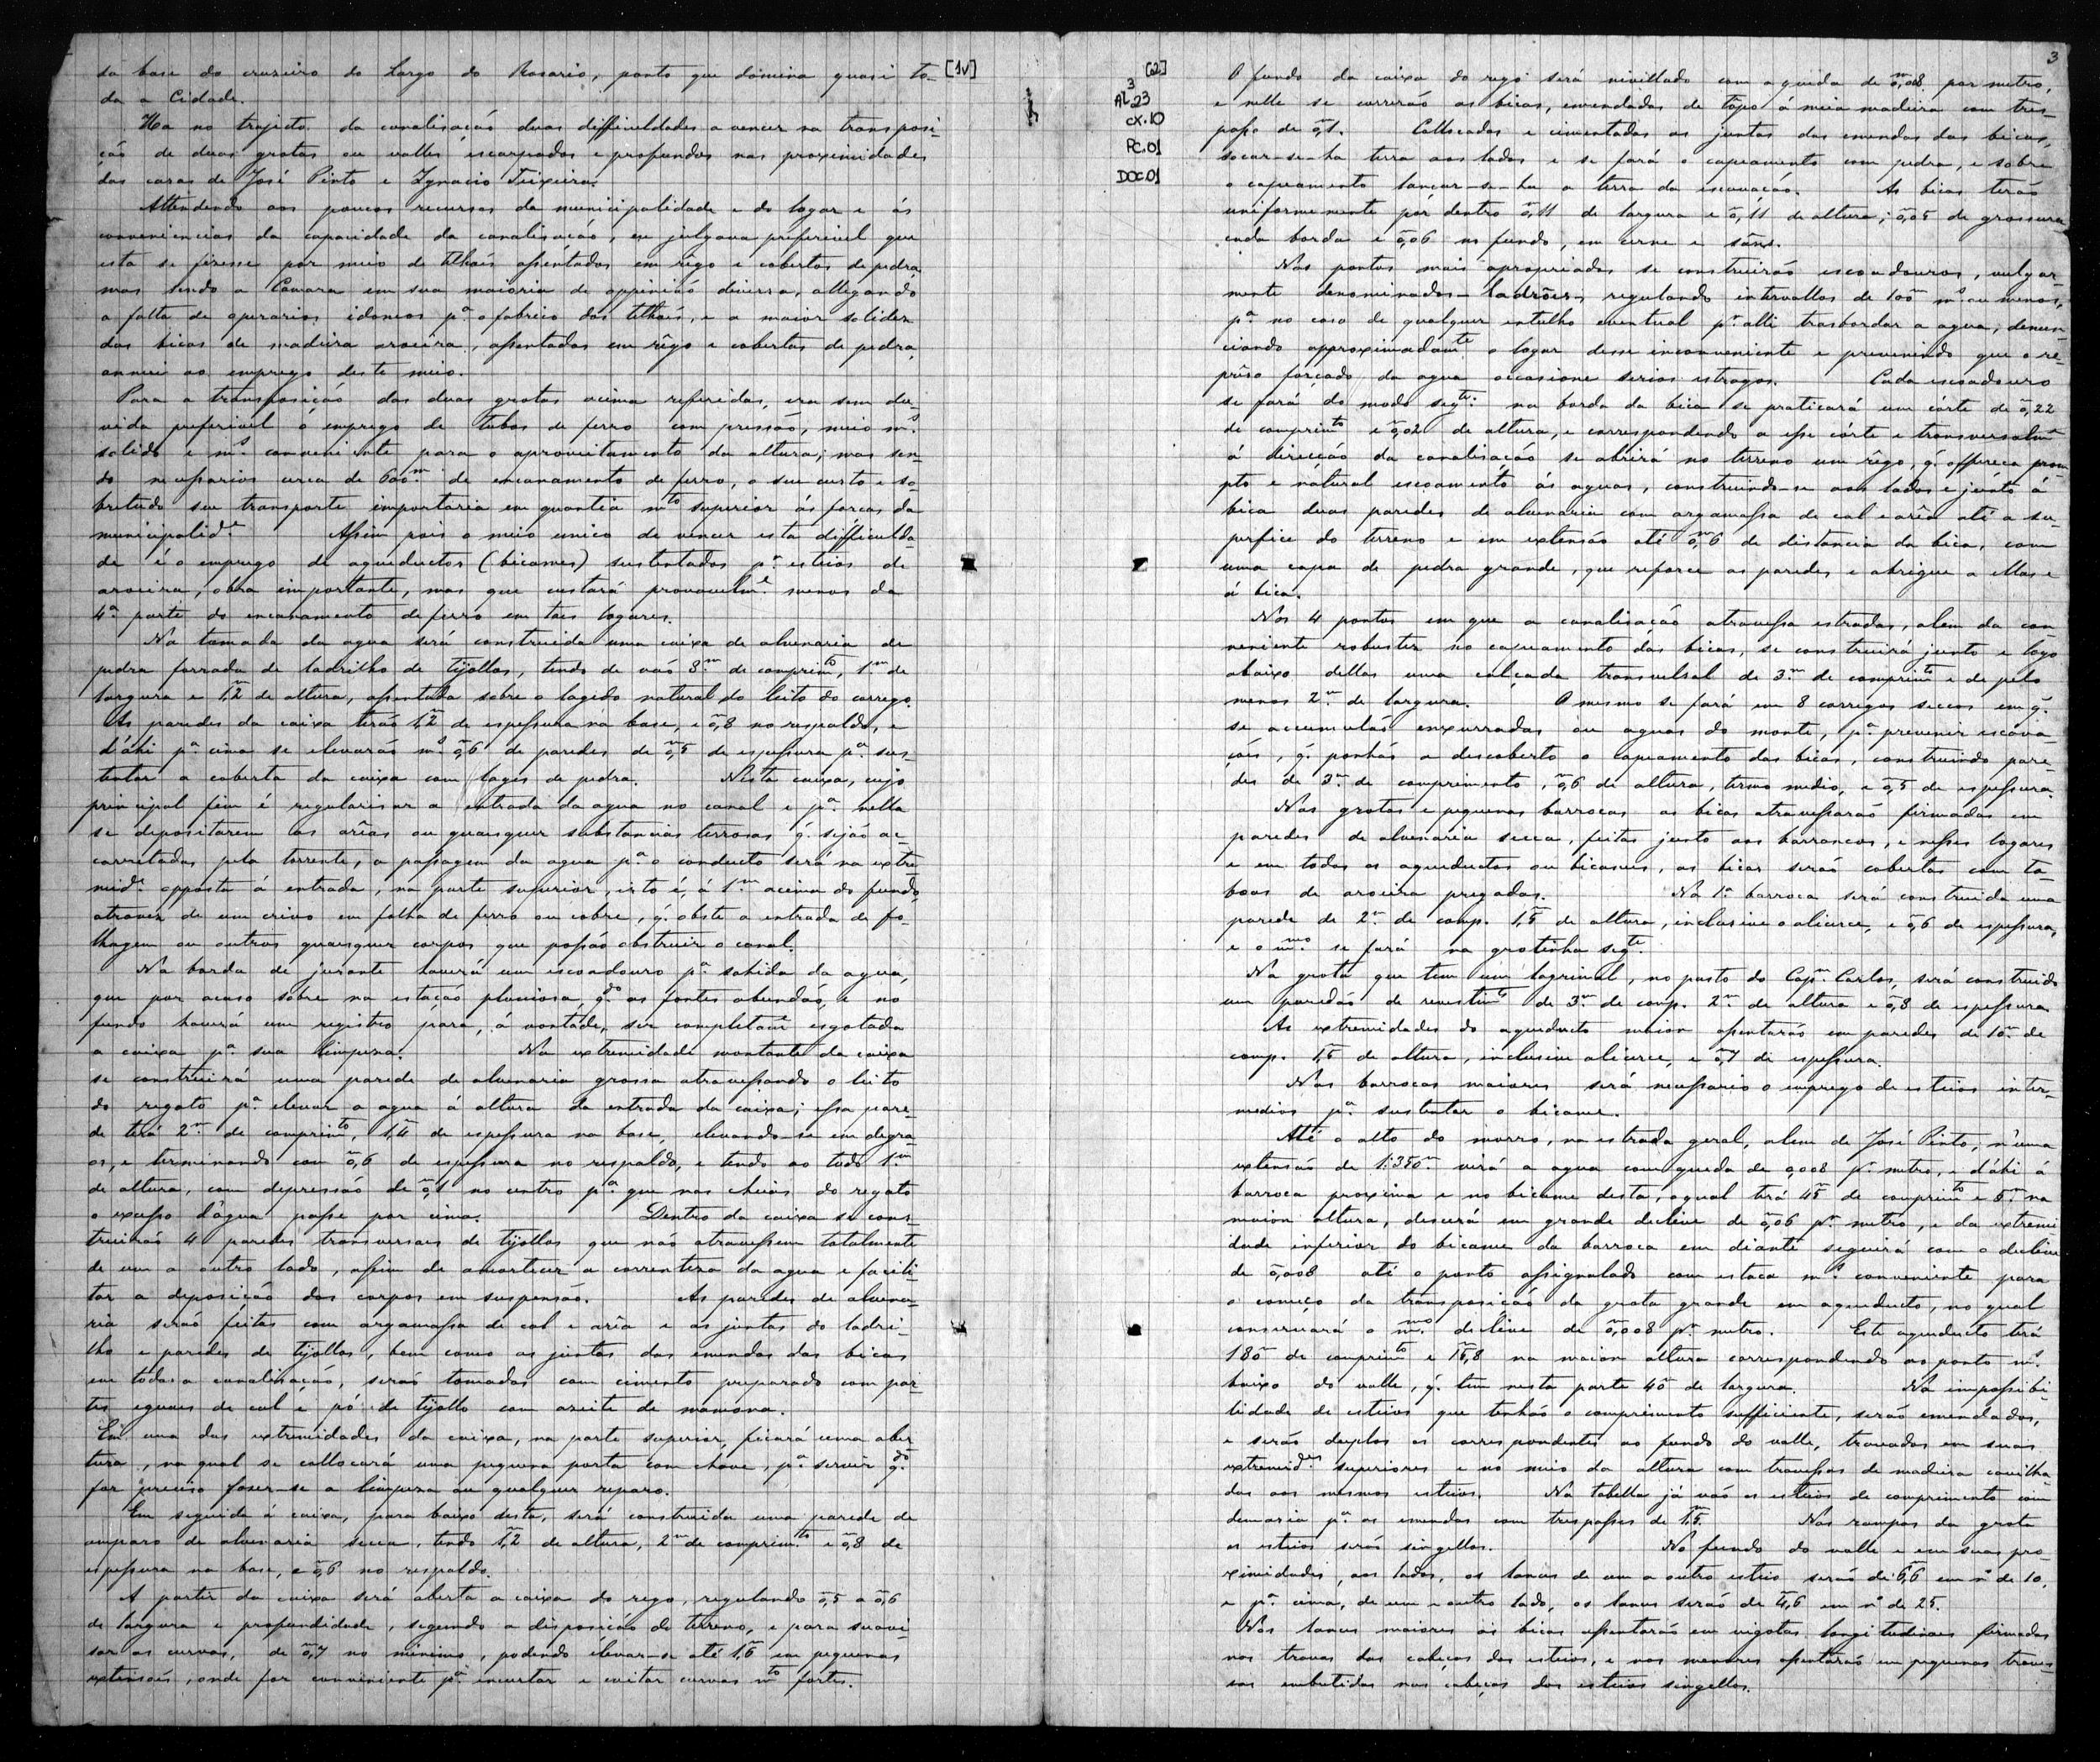 da base do cruzeiro do Largo do Rosario, ponto que domina quasi to-
da a Cidade.
Ha no trajecto da canalisação duas difficuldades a vencer na transposi-
ção de duas grotas ou valles escarpados e profundos nas proximidades
das casas de José Pinto e Ignacio Teixeira.
Attendendo aos poucos recursos da municipalidade e do logar e ás
conveniencias da capacidade da canalisação, eu julgava preferivel que
esta se fizesse por meio de telhões assentados em rêgo e cobertos de pedra,
mas sendo a Camara em sua maioria de oppinião diversa, allegando
a falta de operarios idoneos pª. o fabrico dos telhões, e a maior solidez
das bicas de madeira aroeira, assentadas em rêgo e cobertas de pedra,
annui ao emprego deste meio.
Para a transposição das duas grotas acima referidas, era sem du-
vida preferivel o emprego de tubos de ferro com pressão, meio mˢ.
solido e mˢ. conveniente para o aproveitamento da altura; mas sen-
do necessarios cerca de 600ᵐ. de encanamento de ferro, o seu custo e so-
bretudo seu transporte importaria em quantia mᵗᵒ superior ás forças da
municipalidᵉ. Assim pois o meio unico de vencer esta difficulda-
de é o emprego de aqueductos (bicames) sustentados pʳ. esteios de
aroeira, obra importante, mas que custará provavelmᵉ. menos da
4ª parte do encanamento de ferro em taes logares.
Na tomada da agua será construida uma caixa de alvenaria de
pedra forrada de ladrilho de tijollos, tendo de vão 3ᵐ. de comprimᵗᵒ, 1ᵐ. de
largura e 1ᵐ,2 de altura, assentada sobre o lagedo natural do leito do corrego.
As paredes da caixa terão 1ᵐ,2 de espessura na base, e 0ᵐ,8 no respaldo, e
d'ahi pª cima se elevarão mˢ 0ᵐ,6 de paredes de 0ᵐ,5 de espessura pª. sus-
tentar a coberta da caixa com lages de pedra. Nesta caixa, cujo
principal fim é regularisar a entrada da agua no canal e pª. nella
se depositarem as arêas ou quaesquer substancias terrosas q̃. sejão ac-
carretadas pela torrente, a passagem da agua pª. o conducto será na extre-
midᵉ. opposta á entrada, na parte superior, isto é, á 1ᵐ acima do fundo,
atravez de um crivo em folha de ferro ou cobre, q̃. obste a entrada de fo-
lhagem ou outros quaesquer corpos que possão obstruir o canal.
Na borda de jusante haverá um escoadouro pª. sahida da agua,
que por acaso sobre na estação pluviosa, qᵈᵒ as fontes abundão, e no
fundo haverá um registro para, á vontade, ser completamᵉ esgotada
a caixa pª. sua limpeza. Na extremidade montante da caixa
se construirá uma parede de alvenaria grossa atravessando o leito
do regato pª. elevar a agua á altura da entrada da caixa; essa pare-
de terá 2ᵐ. de comprimᵗᵒ, 1ᵐ,4 de espessura na base, elevando-se em degra-
os, e terminando com 0ᵐ,6 de espessura no respaldo, e tendo ao todo 1ᵐ.
de altura, com depressão de 0ᵐ,1 no centro pª. que nas cheias do regato
o excesso d'agua passe por cima. Dentro da caixa se cons-
truirão 4 paredes transversaes de tijollos que não atravessem totalmente
de um a outro lado, afim de amortecer a correnteza da agua e facili-
tar a deposição dos corpos em suspensão. As paredes de alvena-
ria serão feitas com argamassa de cal e arêa e as juntas do ladri-
lho e paredes de tijollos, bem como as juntas das emendas das bicas
em toda a canalisação, serão tomadas com cimento preparado com par-
tes eguaes de cal e pó de tijollo com azeite de mamona.
Em uma das extremidades da caixa, na parte superior, ficará uma aber-
tura, na qual se collocará uma pequena porta com chave, pª. servir qᵈᵒ.
for preciso fazer-se a limpeza ou qualquer reparo.
Em seguida á caixa, para baixo desta, será construida uma parede de
amparo de alvenaria secca, tendo 1ᵐ,2 de altura, 2ᵐ de comprimᵗᵒ e 0ᵐ,8 de
espessura na base, e 0ᵐ,6 no respaldo.
A partir da caixa será aberta a caixa do rego, regulando 0ᵐ,5 a 0ᵐ,6
de largura e profundidade, segundo a disposição do terreno, e para suavi-
sar as curvas, de 0ᵐ,7 no minimo, podendo elevar-se até 1ᵐ,6 em pequenas
extensões, onde for conveniente pª. encurtar e evitar curvas mᵗᵒ fortes.
[1v]
3
[2]
3
Al 23
CX.10
PC.01
DOC.01
O fundo da caixa do rego será nivellado com a queda de 0ᵐ,008 por metro,
e nelle se correrão as bicas, emendadas de topo á meia madeira com tres-
passo de 0ᵐ,1. Collocadas e cimentadas as juntas das emendas das bicas,
socar-se-ha terra aos lados e se fará o capeamento com pedra, e sobre
o capeamento lançar-se-ha a terra da escavação. As bicas terão
uniformemente por dentro 0ᵐ,11 de largura e 0ᵐ,11 de altura; 0ᵐ,05 de grossura
cada borda e 0ᵐ,06 no fundo, em cerne e sans.
Nos pontos mais apropriados se construirão escoadouros, vulgar-
mente denominados - ladrões - regulando intervallos de 100ᵐ mˢ ou menos,
pª. no caso de qualquer entulho eventual pʳ. alli trasbordar a agua, denun-
ciando approximadamᵗᵉ o logar desse inconveniente e prevenindo que o re-
prêso forçado da agua occasione serios estragos. Cada escoadouro
se fará do modo segᵗᵉ: na borda da bica se praticará um córte de 0ᵐ,22
de comprimᵗᵒ e 0ᵐ,02 de altura, e correspondendo a esse córte e transversalmᵉ
á direcção da canalisação se abrirá no terreno um rêgo, q̃. offereça prom-
pto e natural escoamento ás aguas, construindo-se aos lados e junto á
bica duas paredes de alvenaria com argamassa de cal e arêa até a su-
perficie do terreno e em extensão até 0ᵐ,6 de distancia da bica, com
uma capa de pedra grande, que reforce as paredes e abrigue a ellas e
á bica.
Nos 4 pontos em que a canalisação atravessa estradas, alem da con-
veniente robustez no capeamento das bicas, se construirá junto e logo
abaixo dellas uma calçada transversal de 3ᵐ. de comprimᵗᵒ e de pelo
menos 2ᵐ. de largura. O mesmo se fará em 8 corregos seccos em q̃.
se accumulão enxurradas ou aguas do monte, pª. prevenir escava-
ções, q̃. ponhão a descoberto o capeamento das bicas, construindo pare-
des de 3ᵐ. de comprimento, 0ᵐ,6 de altura, termo medio, e 0ᵐ,5 de espessura.
Nas grotas e pequenas barrocas as bicas atravessarão firmadas em
paredes de alvenaria secca, feitas junto aos barrancos, e nesses logares
e em todos os aqueductos ou bicames, as bicas serão cobertas com ta-
boas de aroeira pregadas. Na 1ª barroca será construida uma
parede de 2ᵐ. de comp. 1ᵐ,5 de altura, inclusive o alicerce, e 0ᵐ,6 de espessura,
e o mᵐᵒ. se fará na grotinha segᵗᵉ.
Na grota que tem um lagrimal, no pasto do Capᵐ. Carlos, será construido
um paredão de revestimᵗᵒ de 3ᵐ. de comp. 2ᵐ. de altura e 0ᵐ,8 de espessura.
As extremidades do aqueducto maior assentarão em paredes de 10ᵐ. de
comp. 1ᵐ,5 de altura, inclusive alicerce, e 0ᵐ,7 de espessura.
Nas barrocas maiores será necessario o emprego de esteios inter-
medios pª. sustentar o bicame.
Até o alto do morro, na estrada geral, alem de José Pinto, n'uma
extensão de 1:350ᵐ. virá a agua com queda de 0,008 pʳ. metro, e d'ahi á
barroca proxima e no bicame desta, o qual terá 45ᵐ de comprimᵗᵒ e 5ᵐ. na
maior altura, descerá em grande declive de 0ᵐ,06 pʳ. metro, e da extremi-
dade inferior do bicame da barroca em diante seguirá com o declive
de 0ᵐ,008 até o ponto assignalado com estaca mˢ conveniente para
o começo da transposição da grota grande em aqueducto, no qual
conservará o mᵐᵒ. declive de 0ᵐ,008 pʳ. metro. Este aqueducto terá
180ᵐ de comprimᵗᵒ e 15ᵐ,8 na maior altura correspondendo ao ponto mˢ.
baixo do valle, q̃. tem nesta parte 40ᵐ de largura. Na impossibi-
lidade de esteios que tenhão o comprimento sufficiente, serão emendados,
e serão duplos os correspondentes ao fundo do valle, travados em suas
extremidᵉˢ superiores e no meio da altura com travessas de madeira cavilha-
das aos mesmos esteios. Na tabella já vão os esteios de comprimento com
demasia pª. as emendas com trespasses de 1ᵐ,5. Nas rampas da grota
os esteios serão singellos. No fundo do valle e em suas pro-
ximidades, aos lados, os lances de um a outro esteio serão de 6ᵐ,6 em nº de 10,
e pª. cima, de um e outro lado, os lances serão de 4ᵐ,6 em nº de 25.
Nos lances maiores as bicas assentarão em vigotas longitudinaes firmadas
nas travas das cabeças dos esteios, e nos menores assentarão em pequenas traves-
sas embutidas nas cabeças dos esteios singellos.